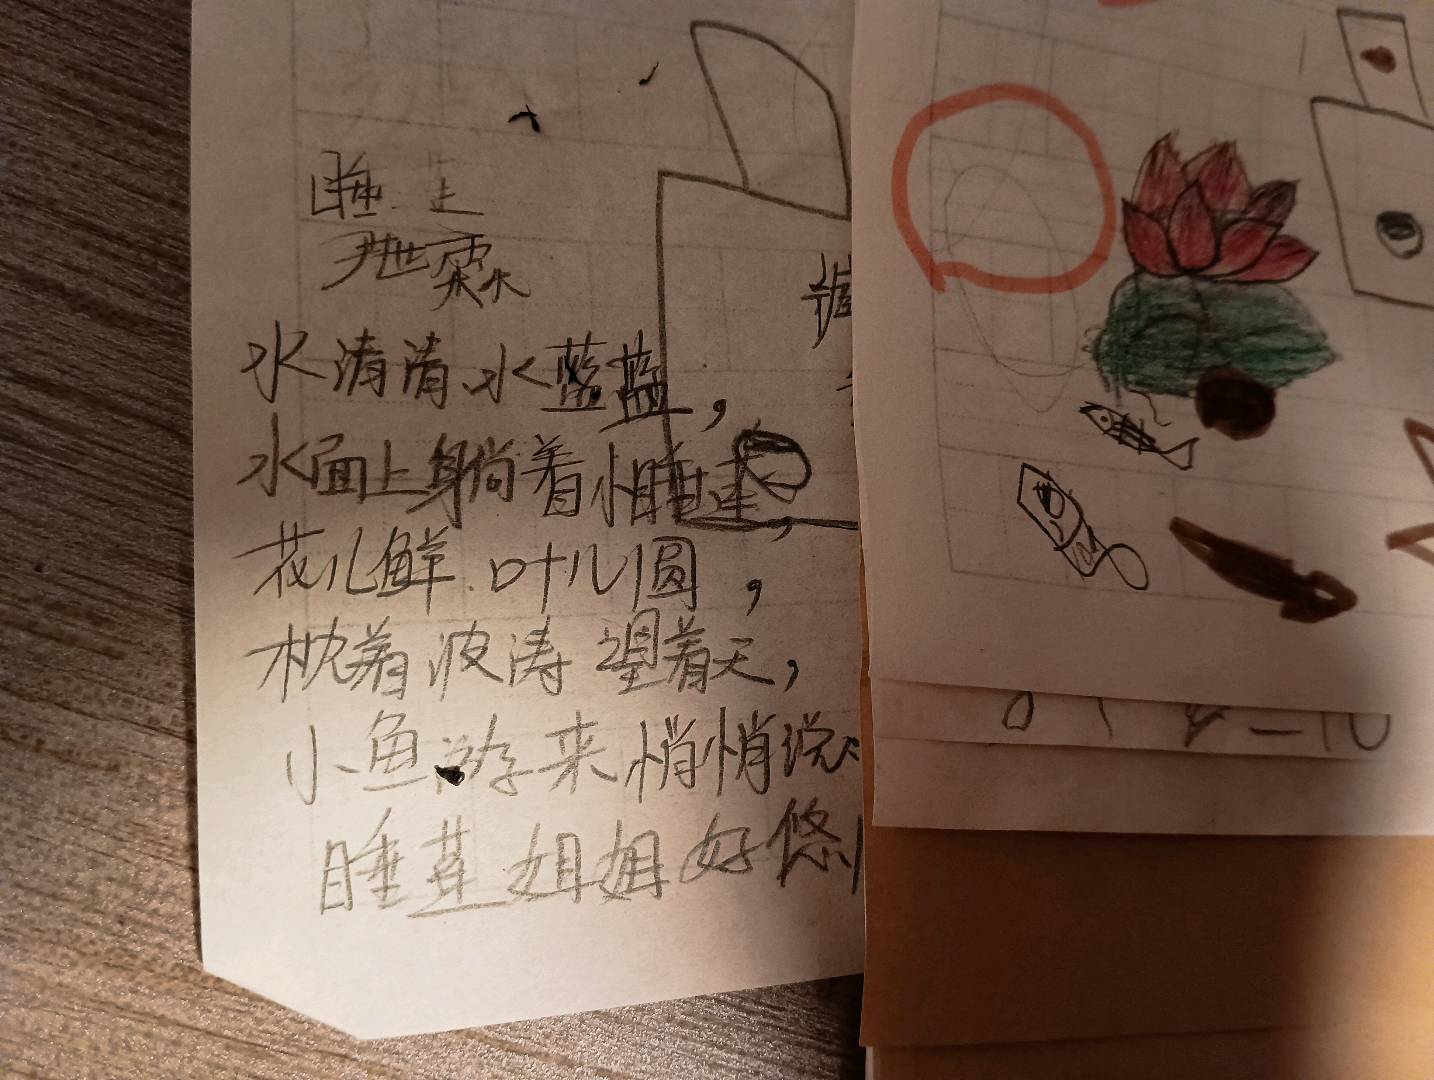 睡莲
尹世霖
水清清,水蓝蓝,
水面上躺着小睡莲,
花儿鲜.叶儿圆,
枕着波涛望着天,
小鱼游来悄悄说
睡莲姐姐好悠